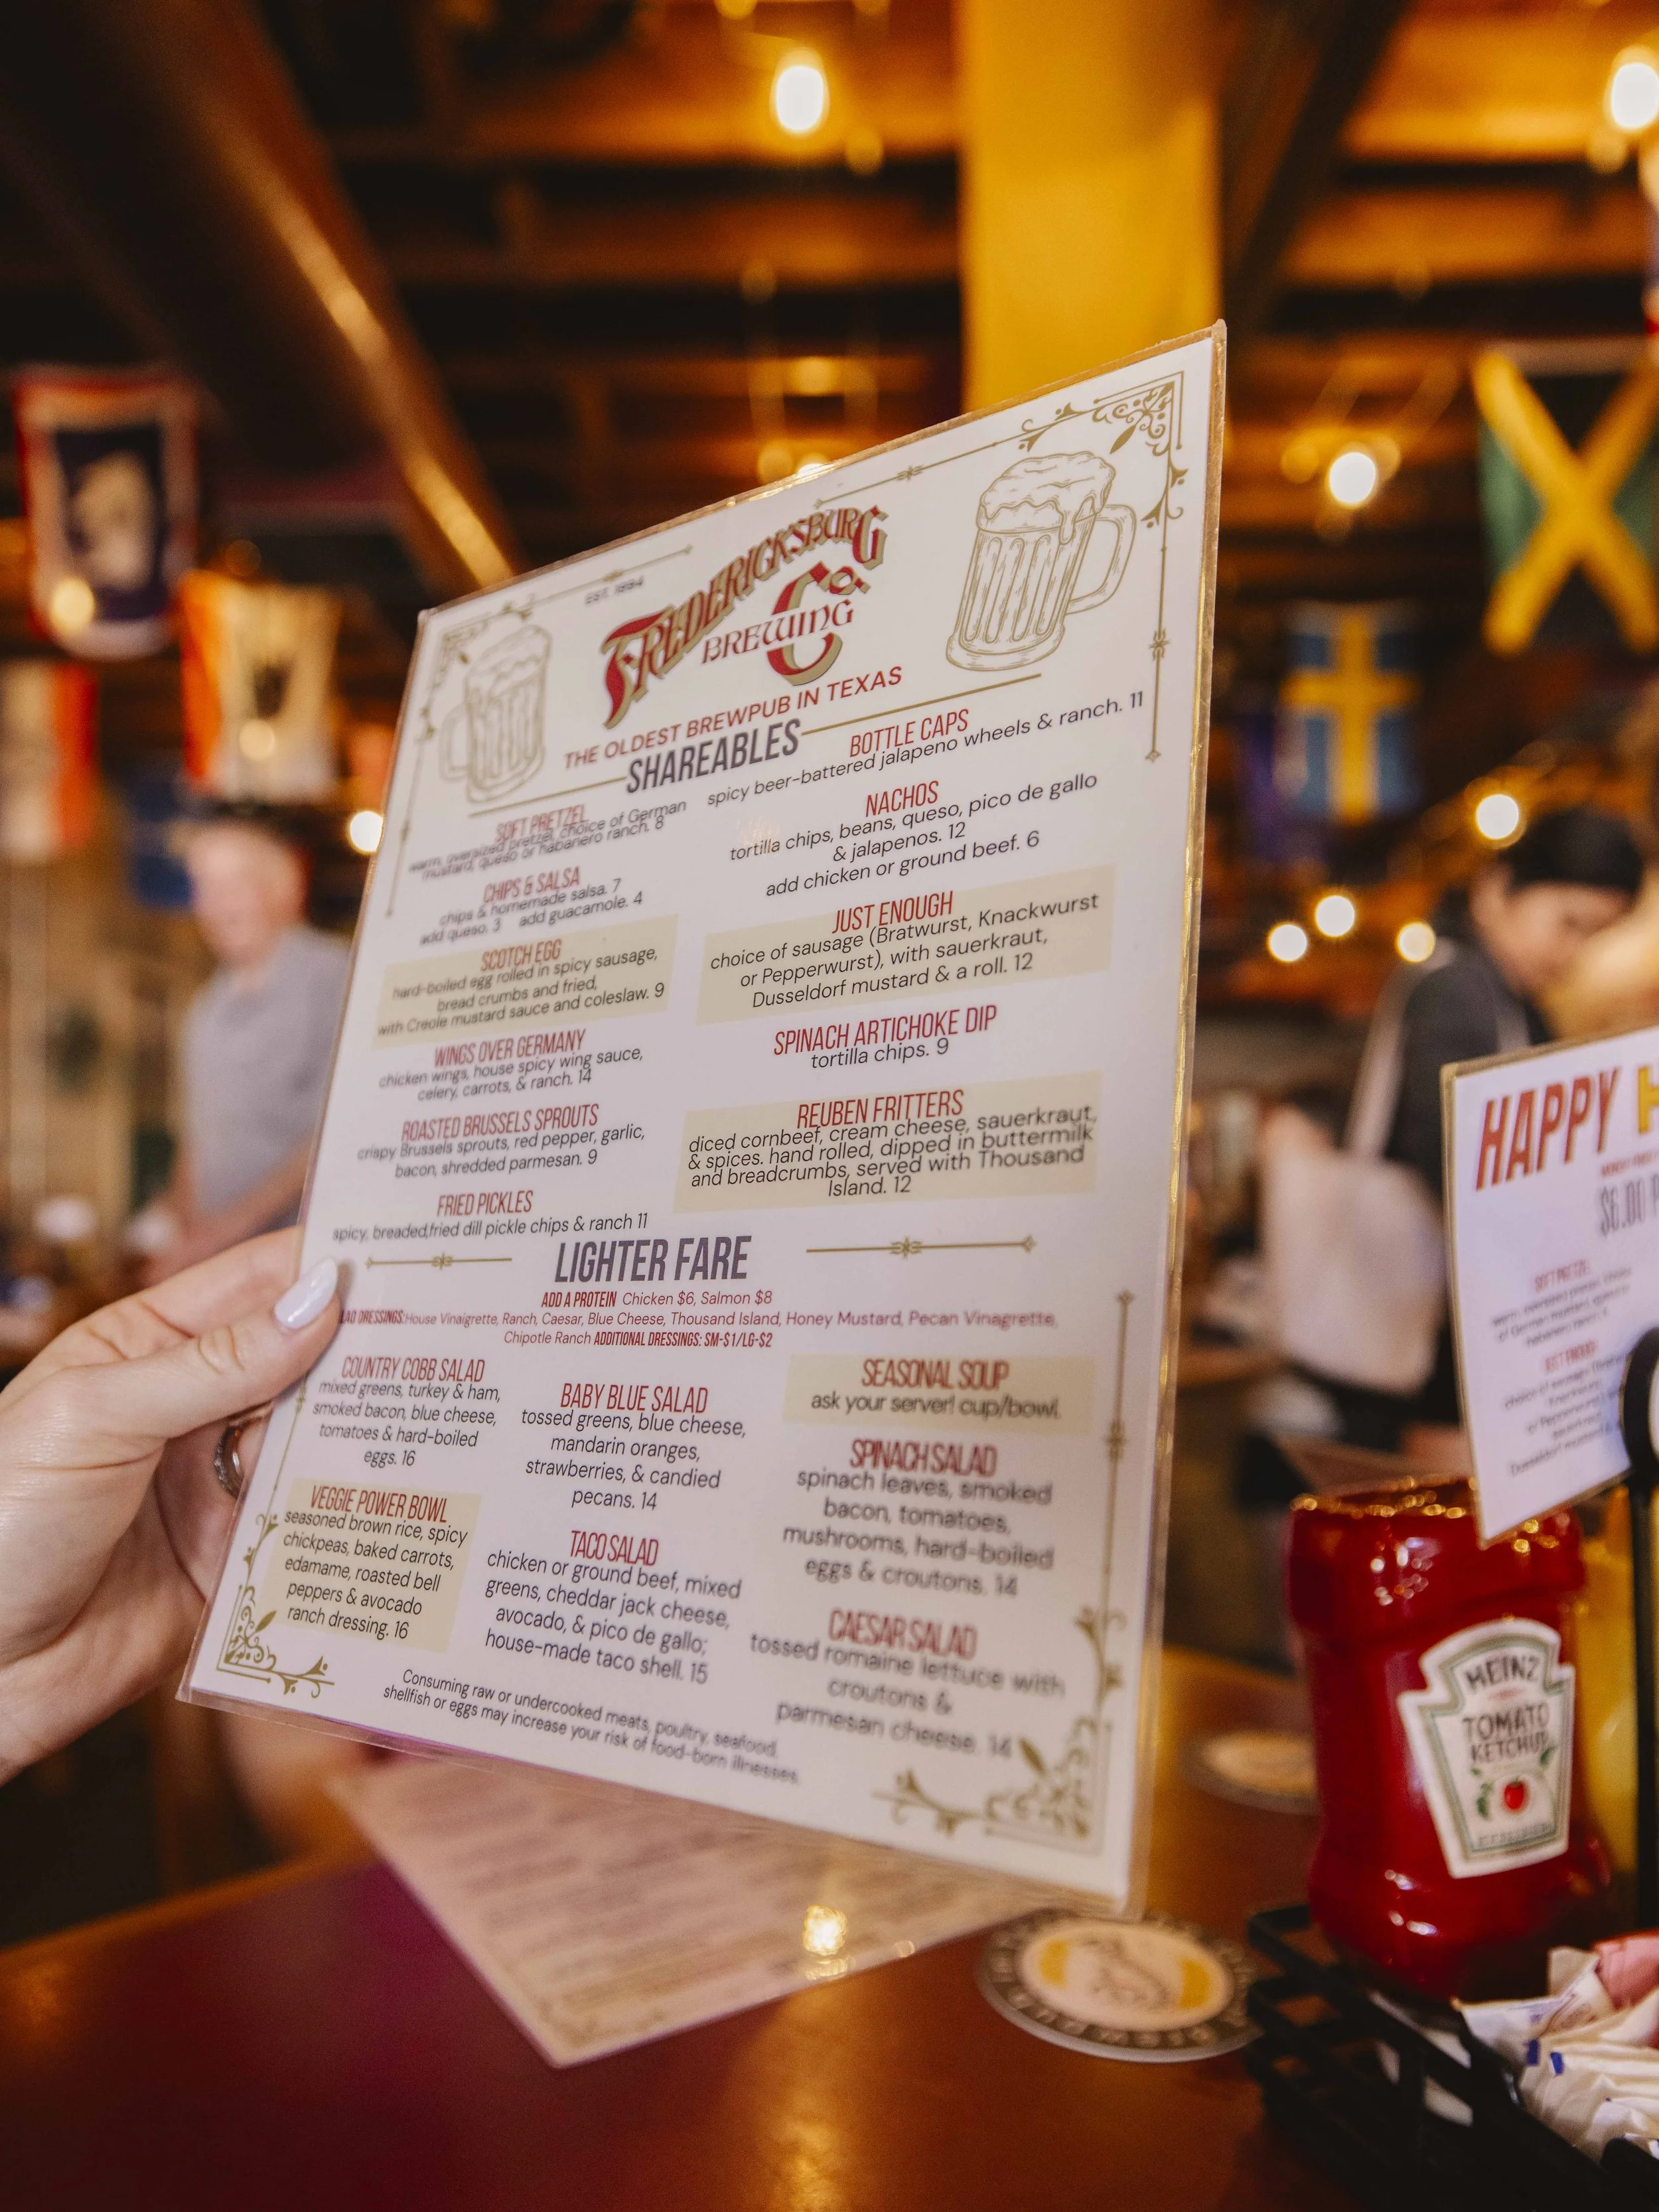 EST. 1994
FREDERICKSBURG
BREWING Co.
THE OLDEST BREWPUB IN TEXAS
SHAREABLES
SOFT PRETZEL
warm, oversized pretzel, choice of German
mustard, queso or habanero ranch. 8
CHIPS & SALSA
chips & homemade salsa. 7
add queso. 3 add guacamole. 4
SCOTCH EGG
hard-boiled egg rolled in spicy sausage,
bread crumbs and fried,
with Creole mustard sauce and coleslaw. 9
WINGS OVER GERMANY
chicken wings, house spicy wing sauce,
celery, carrots, & ranch. 14
ROASTED BRUSSELS SPROUTS
crispy Brussels sprouts, red pepper, garlic,
bacon, shredded parmesan. 9
FRIED PICKLES
spicy, breaded,fried dill pickle chips & ranch 11
BOTTLE CAPS
spicy beer-battered jalapeno wheels & ranch. 11
NACHOS
tortilla chips, beans, queso, pico de gallo
& jalapenos. 12
add chicken or ground beef. 6
JUST ENOUGH
choice of sausage (Bratwurst, Knackwurst
or Pepperwurst), with sauerkraut,
Dusseldorf mustard & a roll. 12
SPINACH ARTICHOKE DIP
tortilla chips. 9
REUBEN FRITTERS
diced cornbeef, cream cheese, sauerkraut,
& spices. hand rolled, dipped in buttermilk
and breadcrumbs, served with Thousand
Island. 12
LIGHTER FARE
ADD A PROTEIN Chicken $6, Salmon $8
DRESSINGS:House Vinaigrette, Ranch, Caesar, Blue Cheese, Thousand Island, Honey Mustard, Pecan Vinagrette,
Chipotle Ranch ADDITIONAL DRESSINGS: SM-$1/LG-$2
COUNTRY COBB SALAD
mixed greens, turkey & ham,
smoked bacon, blue cheese,
tomatoes & hard-boiled
eggs. 16
VEGGIE POWER BOWL
seasoned brown rice, spicy
chickpeas, baked carrots,
edamame, roasted bell
peppers & avocado
ranch dressing. 16
BABY BLUE SALAD
tossed greens, blue cheese,
mandarin oranges,
strawberries, & candied
pecans. 14
TACO SALAD
chicken or ground beef, mixed
greens, cheddar jack cheese,
avocado, & pico de gallo;
house-made taco shell. 15
SEASONAL SOUP
ask your server! cup/bowl.
SPINACH SALAD
spinach leaves, smoked
bacon, tomatoes,
mushrooms, hard-boiled
eggs & croutons. 14
CAESAR SALAD
tossed romaine lettuce with
croutons &
parmesan cheese. 14
Consuming raw or undercooked meats, poultry, seafood,
shellfish or eggs may increase your risk of food-born illnesses.
HAPPY
$6.00
SOFT PRETZEL
JUST ENOUGH
HEINZ
TOMATO
KETCHUP